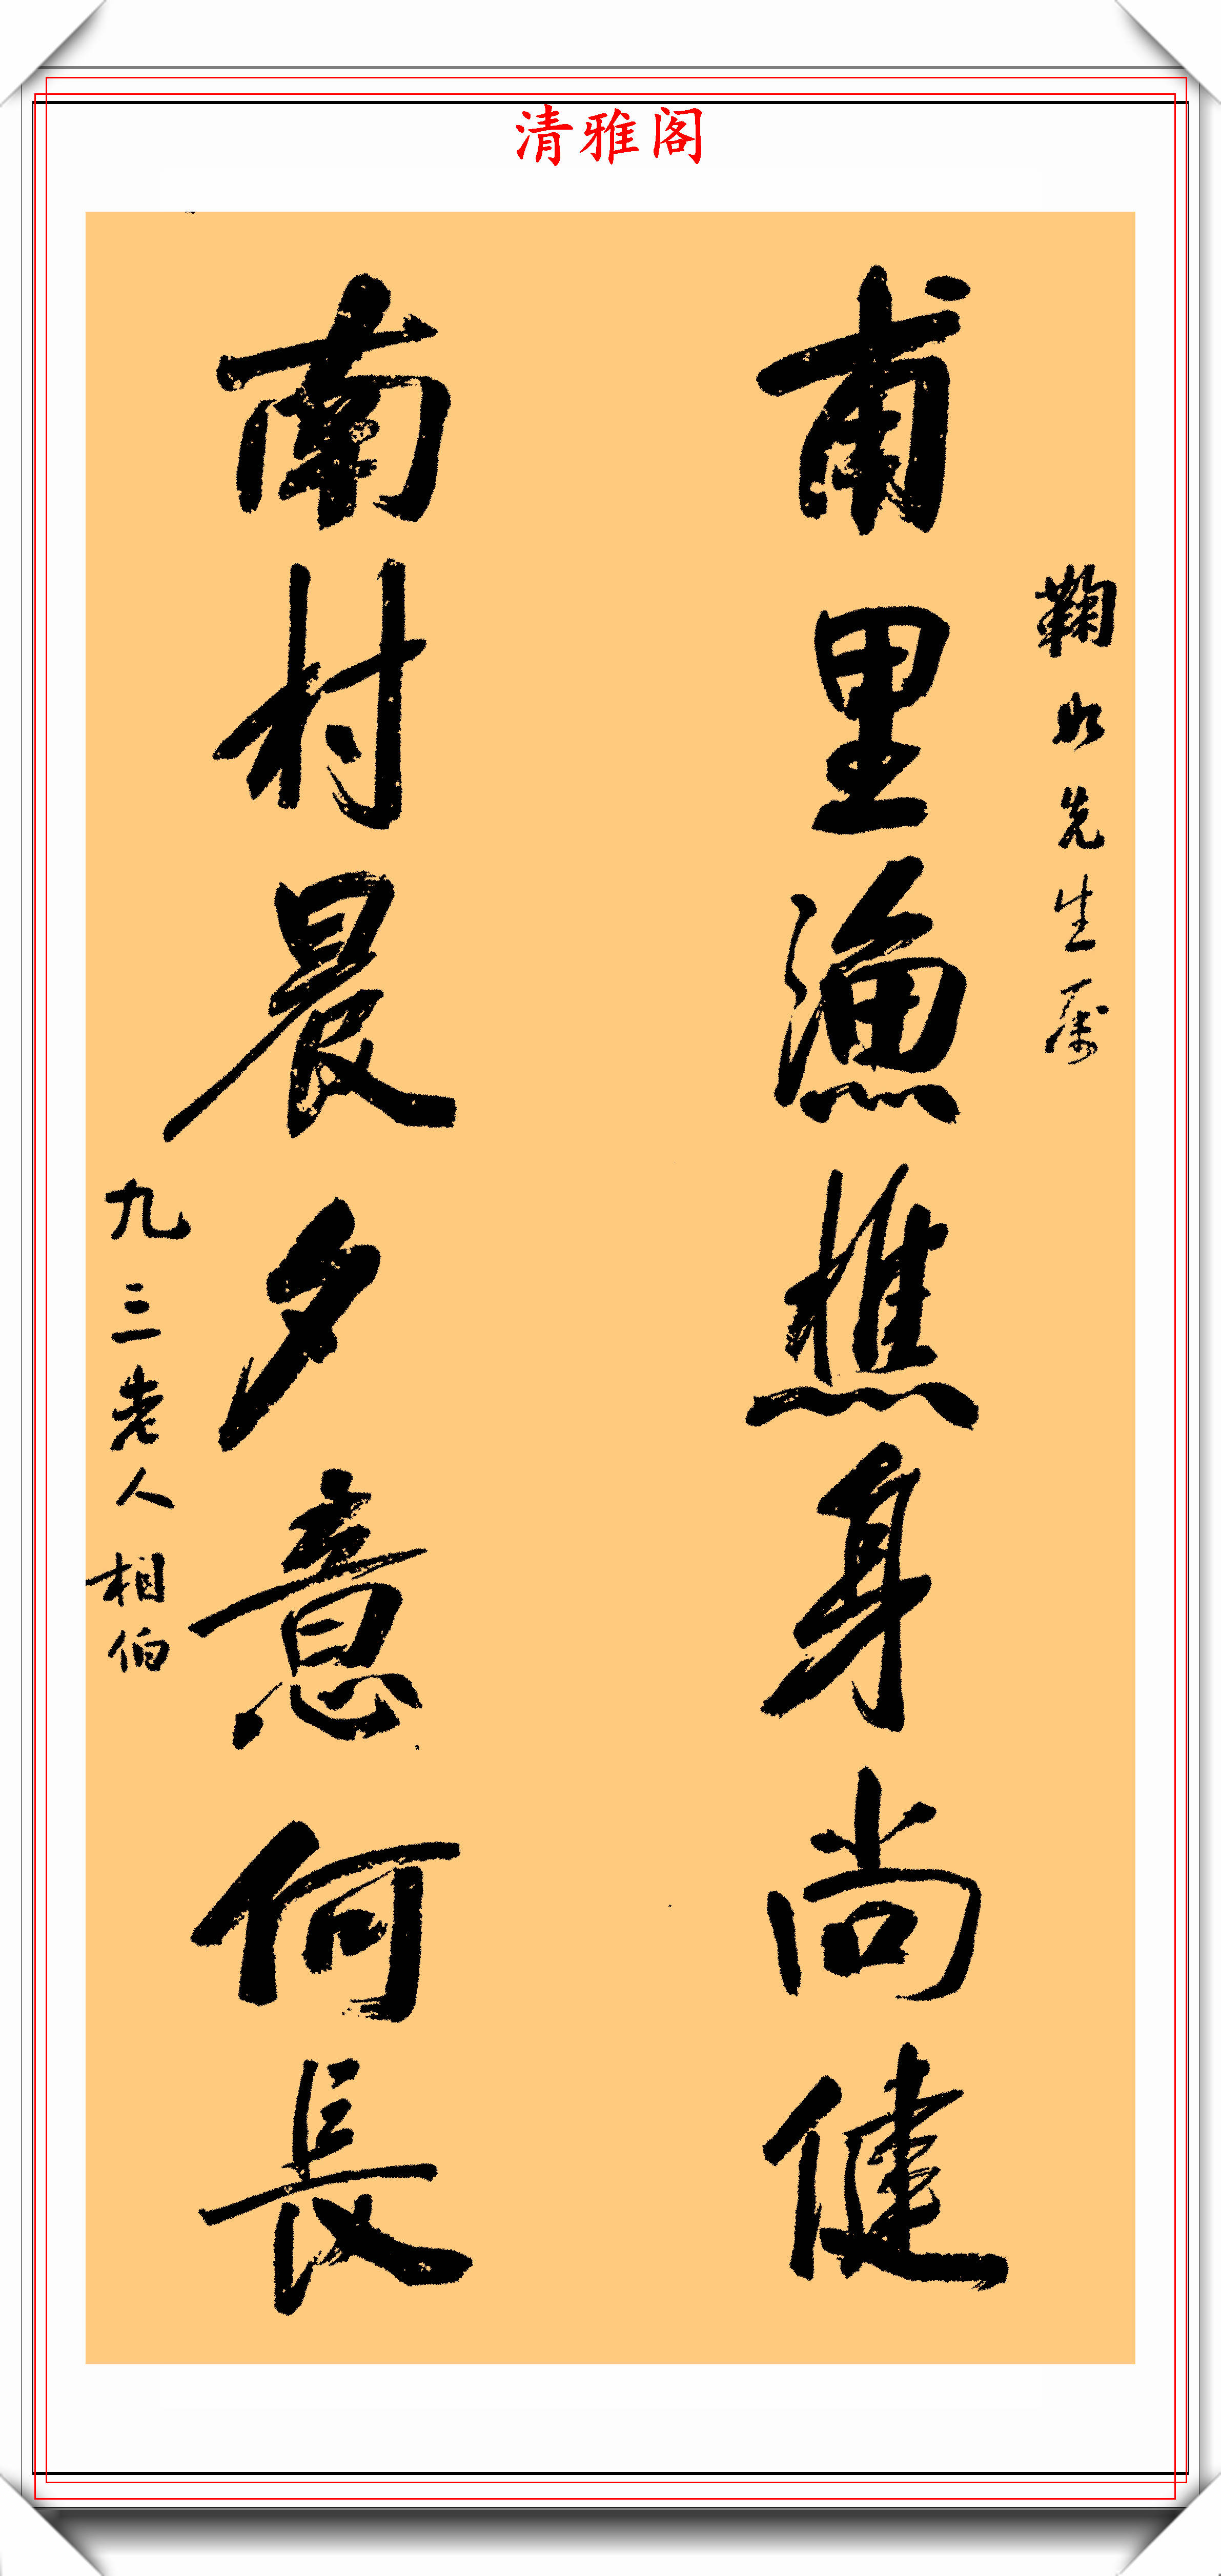 清雅阁
鞠如先生属
甫里漁樵身尚健
南村晨夕意何長
九三老人相伯